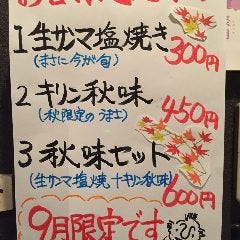 1 生サンマ塩焼き
(まさに今が旬)
300円
2 キリン秋味
(秋限定のうまさ)
450円
3 秋味セット
(生サンマ塩焼+キリン秋味)
600円
9月限定です